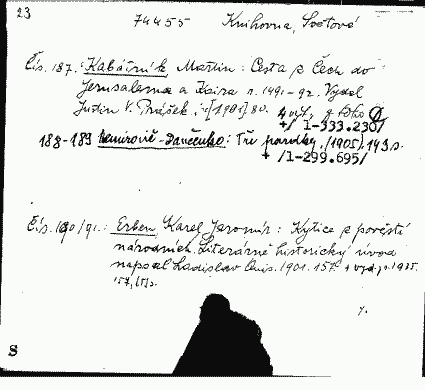 23
74455 Knihovna, Světová
Čís. 187.: Kabátník Martin: Cesta z Čech do
Jerusalema a Kaira r. 1491-92. Vydal
Justin V. Prášek. [1901] 80.
+/ 1-333.230/
188-189 Němirovič-Dančenko: Tři povídky. /1905/ 143 s.
+ /1-299.695/
Čís. 190/91.: Erben, Karel Jaromír: Kytice z pověstí
národních. Literárně historický úvod
napsal Ladislav Quis. 1901. 157.
157, s.
S